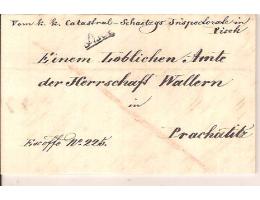 Vom k. k. Catastral-Schaetzgs Inspectorate in
Pisek
Pisek
Einem Löblichen Amte
der Herrschaft Wallern
in
Prachatitz
No 225.